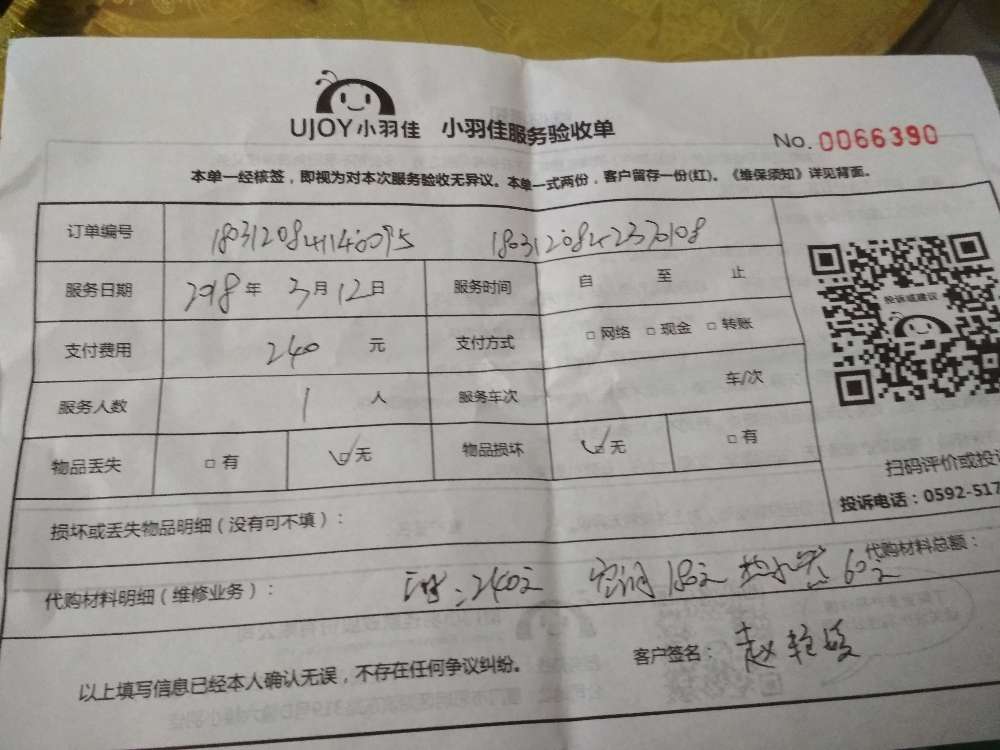 UJOY小羽佳 小羽佳服务验收单
No. 0066390
本单一经核签，即视为对本次服务验收无异议。本单一式两份，客户留存一份(红)。《维保须知》详见背面。
订单编号
服务日期 2018年 3月12日 服务时间 自 至 止
支付费用 240 元 支付方式 □网络 □现金 □转账
服务人数 1 人 服务车次 车/次
物品丢失 □有 □无 物品损坏 □无 □有
投诉或建议
扫码评价或投
投诉电话：0592-517
损坏或丢失物品明细（没有可不填）：
代购材料明细（维修业务）： 240元 空调180元 热水器60元 代购材料总额：
以上填写信息已经本人确认无误，不存在任何争议纠纷。 客户签名： 赵